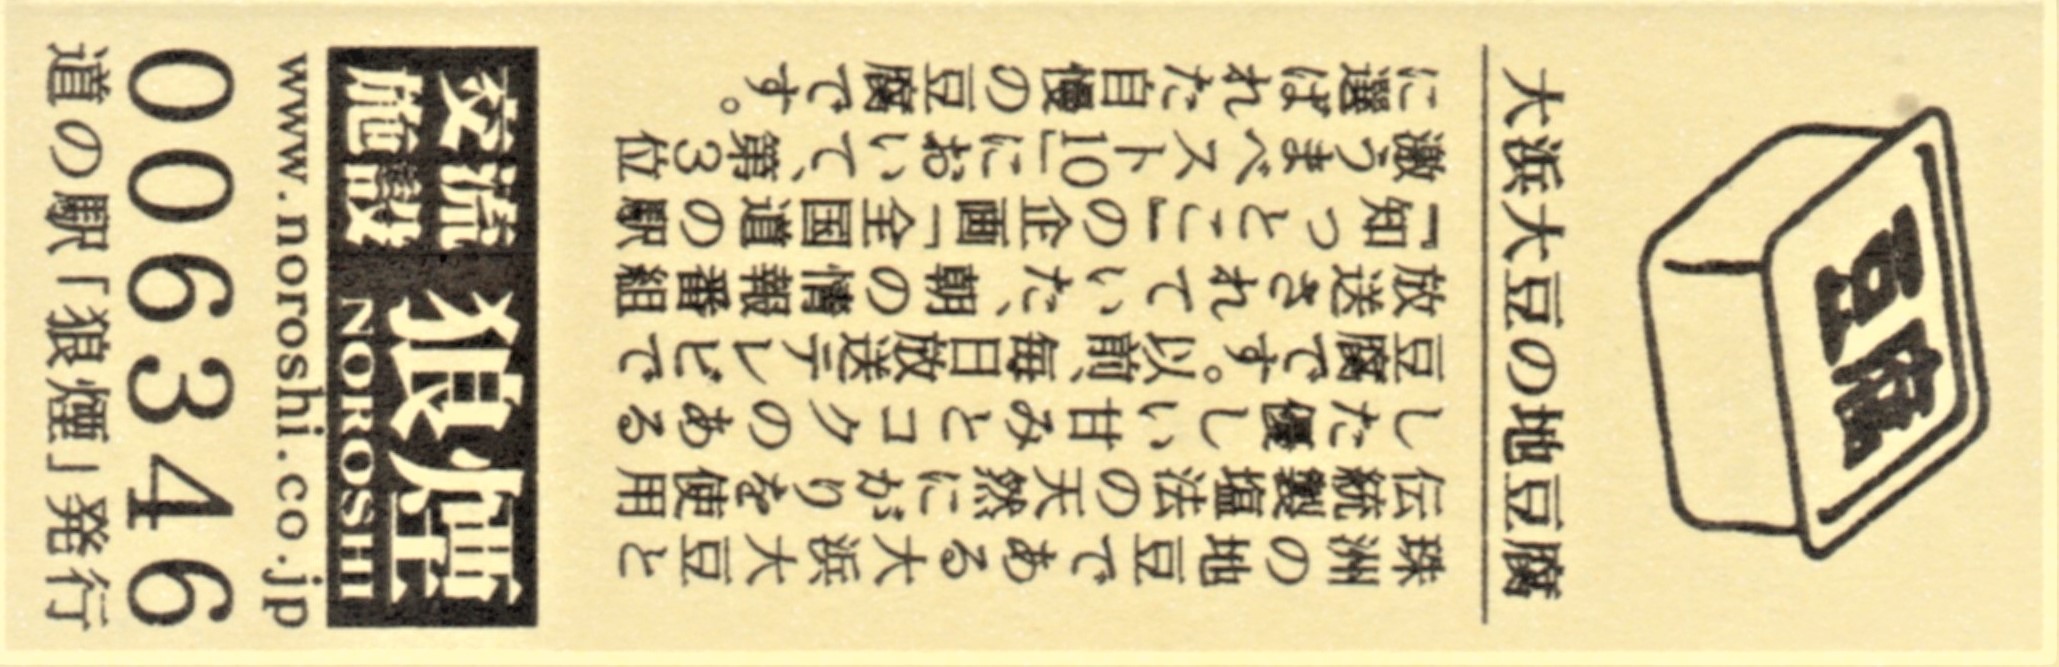 豆腐
大浜大豆の地豆腐
珠洲の地豆である大浜大豆と
伝統製塩法の天然にがりを使用
した優しい甘みとコクのある
豆腐です。以前、毎日放送テレビで
放送されていた、朝の情報番組
『知っとこ』の企画「全国道の駅
激うまベスト10」において、第3位
に選ばれた自慢の豆腐です。
交流
施設
狼煙
NOROSHI
www.noroshi.co.jp
006346
道の駅「狼煙」発行